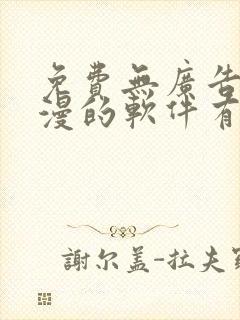 免費無廣告
漫的軟件有
謝尔盖-拉夫羅